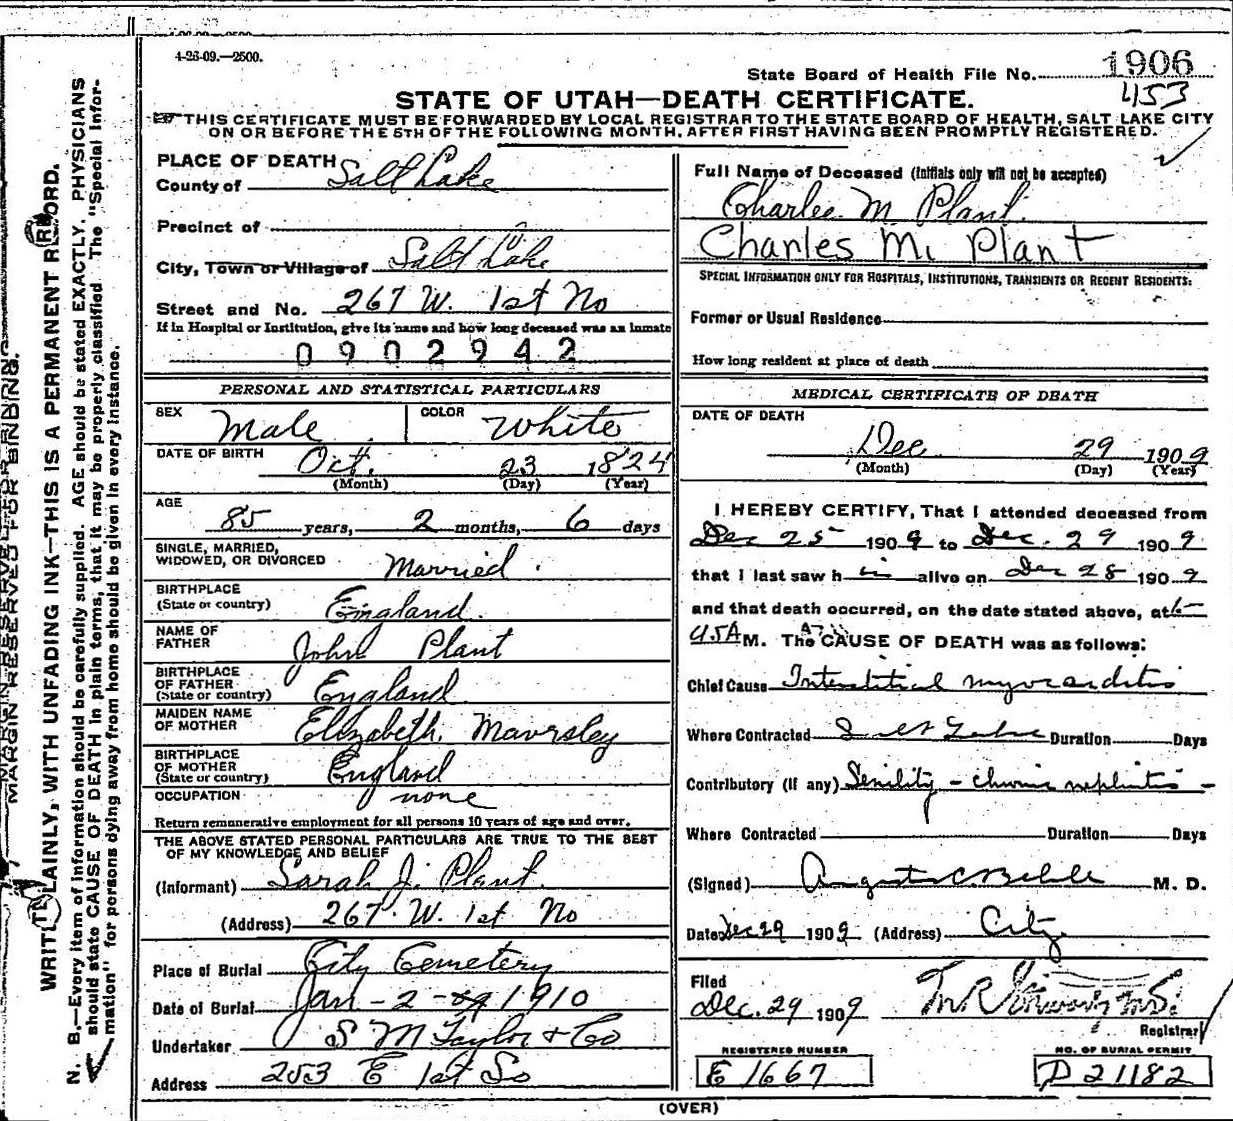 4-26-09.—2500.
State Board of Health File No. 1906
453
STATE OF UTAH—DEATH CERTIFICATE.
THIS CERTIFICATE MUST BE FORWARDED BY LOCAL REGISTRAR TO THE STATE BOARD OF HEALTH, SALT LAKE CITY
ON OR BEFORE THE 5TH OF THE FOLLOWING MONTH, AFTER FIRST HAVING BEEN PROMPTLY REGISTERED.
MARGIN RESERVED FOR BINDING.
WRITE PLAINLY, WITH UNFADING INK—THIS IS A PERMANENT RECORD.
N. B.—Every item of information should be carefully supplied. AGE should be stated EXACTLY. PHYSICIANS
should state CAUSE OF DEATH in plain terms, that it may be properly classified. The "Special Infor-
mation" for persons dying away from home should be given in every instance.
PLACE OF DEATH
County of Salt Lake
Precinct of
City, Town or Village of Salt Lake
Street and No. 267 W. 1st No
If in Hospital or Institution, give its name and how long deceased was an inmate
0902942
PERSONAL AND STATISTICAL PARTICULARS
SEX Male COLOR White
DATE OF BIRTH Oct. 23 1824
(Month) (Day) (Year)
AGE
85 years, 2 months, 6 days
SINGLE, MARRIED,
WIDOWED, OR DIVORCED Married.
BIRTHPLACE
(State or country) England.
NAME OF
FATHER John Plant
BIRTHPLACE
OF FATHER
(State or country) England
MAIDEN NAME
OF MOTHER Elizabeth Mavrsley
BIRTHPLACE
OF MOTHER
(State or country) England
OCCUPATION none
Return remunerative employment for all persons 10 years of age and over.
THE ABOVE STATED PERSONAL PARTICULARS ARE TRUE TO THE BEST
OF MY KNOWLEDGE AND BELIEF
(Informant) Sarah J. Plant.
(Address) 267. W. 1st No
Place of Burial City Cemetery
Date of Burial Jan - 2 - 1910
Undertaker S M Taylor & Co
Address 253 E 1st So
Full Name of Deceased (Initials only will not be accepted)
Charles M Plant.
Charles M. Plant
SPECIAL INFORMATION ONLY FOR HOSPITALS, INSTITUTIONS, TRANSIENTS OR RECENT RESIDENTS:
Former or Usual Residence
How long resident at place of death
MEDICAL CERTIFICATE OF DEATH
DATE OF DEATH
Dec 29 1909
(Month) (Day) (Year)
I HEREBY CERTIFY, That I attended deceased from
Dec 25 1909 to Dec. 29 1909
that I last saw h im alive on Dec 28 1909
and that death occurred, on the date stated above, at
M. The CAUSE OF DEATH was as follows:
Chief Cause Interstitial myocarditis
Where Contracted Salt Lake Duration Days
Contributory (if any) Senility - chronic nephritis -
Where Contracted Duration Days
(Signed) M. D.
Date Dec 29 1909 (Address) City
Filed
Dec. 29 1909
Registrar
REGISTERED NUMBER
E 1667
NO. OF BURIAL PERMIT
D 21182
(OVER)